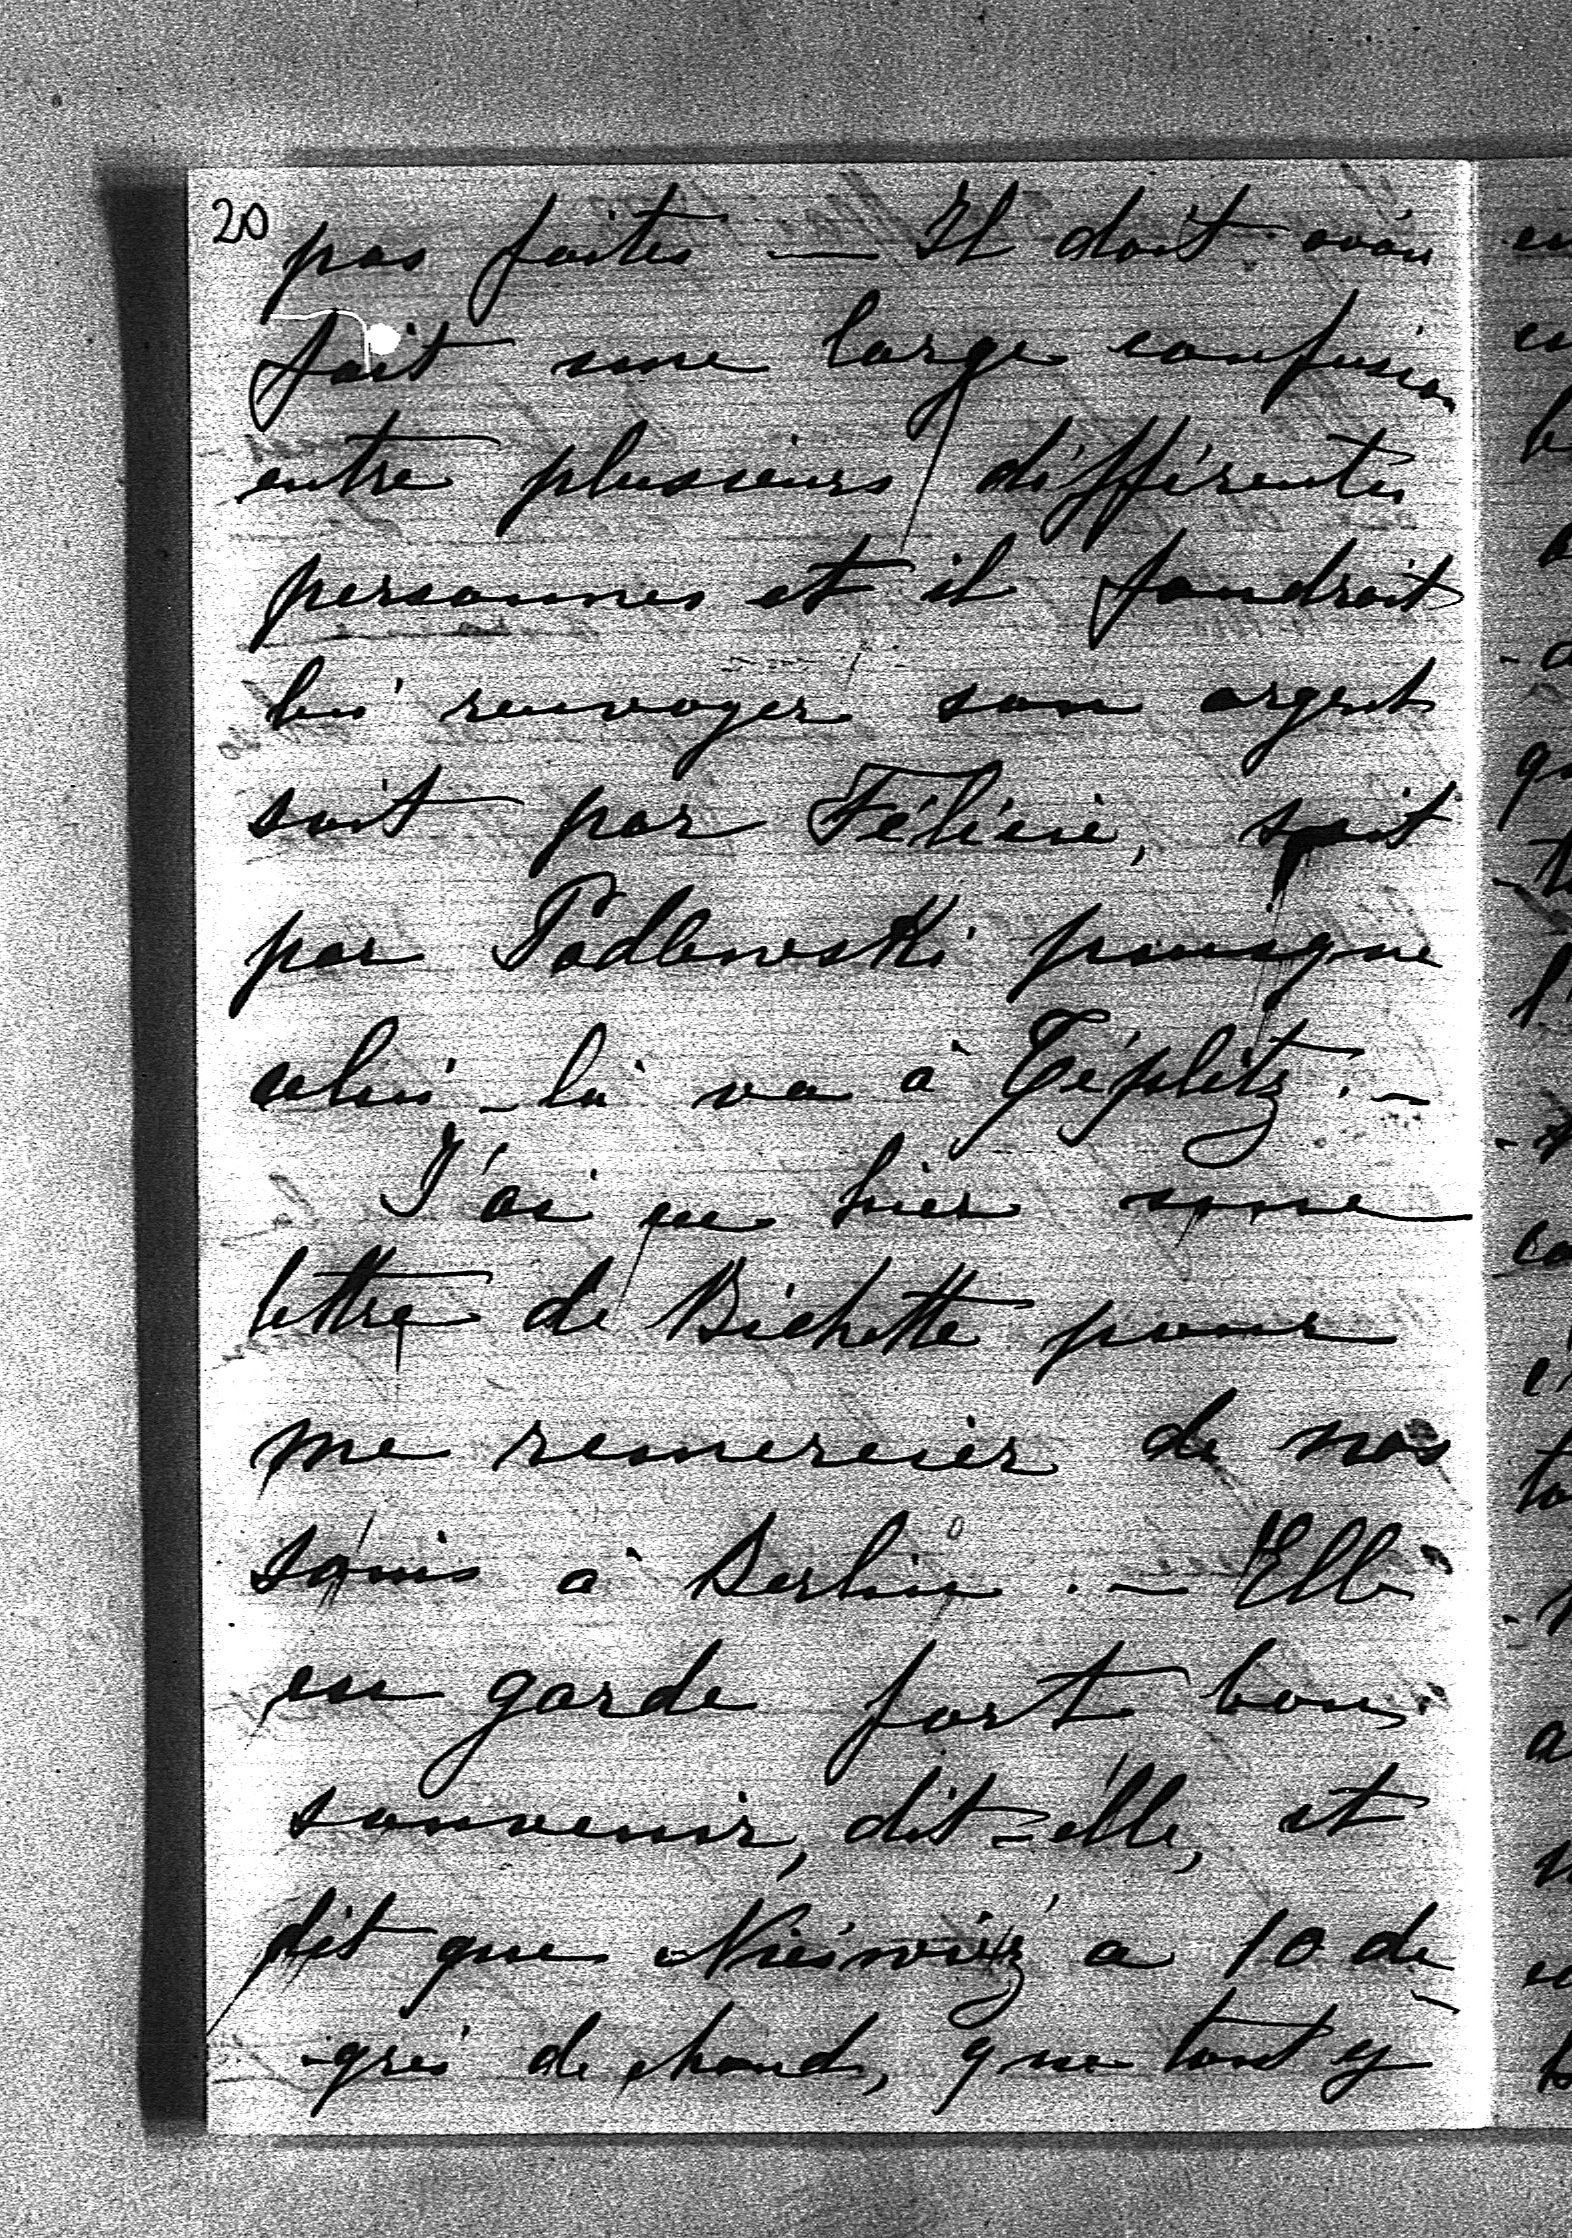 20
pas faites — Il doit avoir
fait une large confusion
entre plusieurs différentes
personnes et il faudrait
lui renvoyer son argent
soit par Félicie, soit
par Podlewski puisque
celui-là va à Téplitz. —
J'ai eu hier une
lettre de Bichette pour
me remercier de nos
soins à Berlin. — Elle
en garde fort bon
souvenir, dit-elle, et
dit que Nieświéz a 10 de
-grés de chaud, que tout y